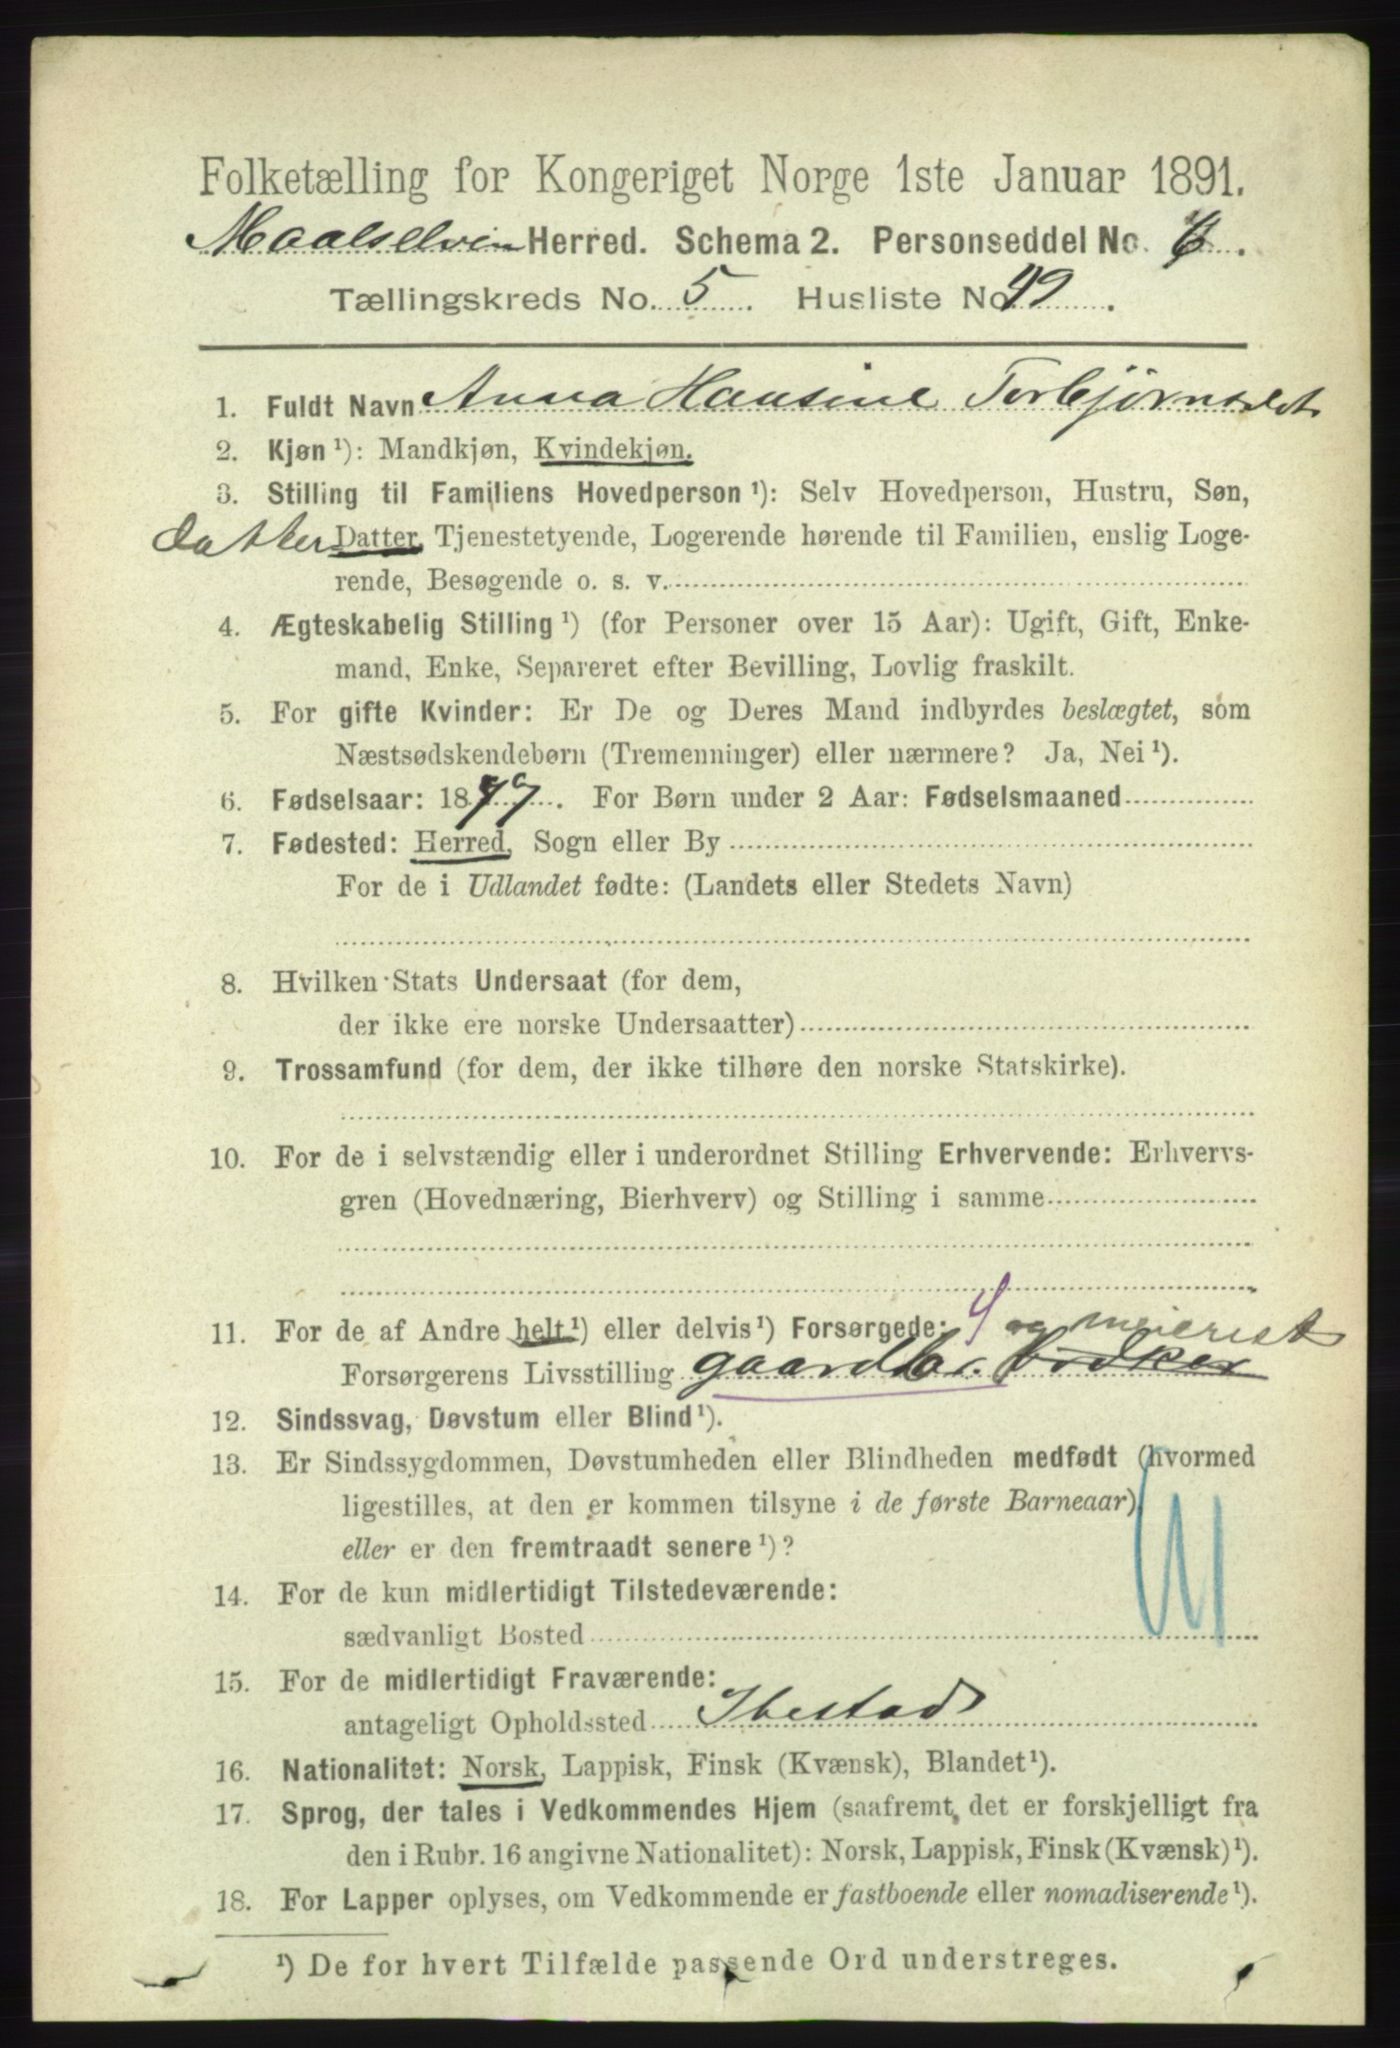 Folketælling for Kongeriget Norge 1ste Januar 1891.
Maalselven Herred. Schema 2. Personseddel No. 6.
Tællingskreds No. 5. Husliste No. 49.
1. Fuldt Navn Anna Hansine Torbjørnsdt
2. Kjøn ¹): Mandkjøn, Kvindekjøn.
3. Stilling til Familiens Hovedperson ¹): Selv Hovedperson, Hustru, Søn,
datter Datter, Tjenestetyende, Logerende hørende til Familien, enslig Loge-
rende, Besøgende o. s. v.
4. Ægteskabelig Stilling ¹) (for Personer over 15 Aar): Ugift, Gift, Enke-
mand, Enke, Separeret efter Bevilling, Lovlig fraskilt.
5. For gifte Kvinder: Er De og Deres Mand indbyrdes beslægtet, som
Næstsødskendebørn (Tremenninger) eller nærmere? Ja, Nei ¹).
6. Fødselsaar: 1879. For Børn under 2 Aar: Fødselsmaaned
7. Fødested: Herred, Sogn eller By
For de i Udlandet fødte: (Landets eller Stedets Navn)
8. Hvilken Stats Undersaat (for dem,
der ikke ere norske Undersaatter)
9. Trossamfund (for dem, der ikke tilhøre den norske Statskirke).
10. For de i selvstændig eller i underordnet Stilling Erhvervende: Erhvervs-
gren (Hovednæring, Bierhverv) og Stilling i samme
11. For de af Andre helt ¹) eller delvis ¹) Forsørgede: 4 og meierist
Forsørgerens Livsstilling gaardbr. Bødker
12. Sindssvag, Døvstum eller Blind ¹).
13. Er Sindssygdommen, Døvstumheden eller Blindheden medfødt (hvormed
ligestilles, at den er kommen tilsyne i de første Barneaar)
eller er den fremtraadt senere ¹)?
14. For de kun midlertidigt Tilstedeværende:
sædvanligt Bosted
15. For de midlertidigt Fraværende:
antageligt Opholdssted Ibestad
16. Nationalitet: Norsk, Lappisk, Finsk (Kvænsk), Blandet ¹).
17. Sprog, der tales i Vedkommendes Hjem (saafremt det er forskjelligt fra
den i Rubr. 16 angivne Nationalitet): Norsk, Lappisk, Finsk (Kvænsk) ¹).
18. For Lapper oplyses, om Vedkommende er fastboende eller nomadiserende ¹).
¹) De for hvert Tilfælde passende Ord understreges.